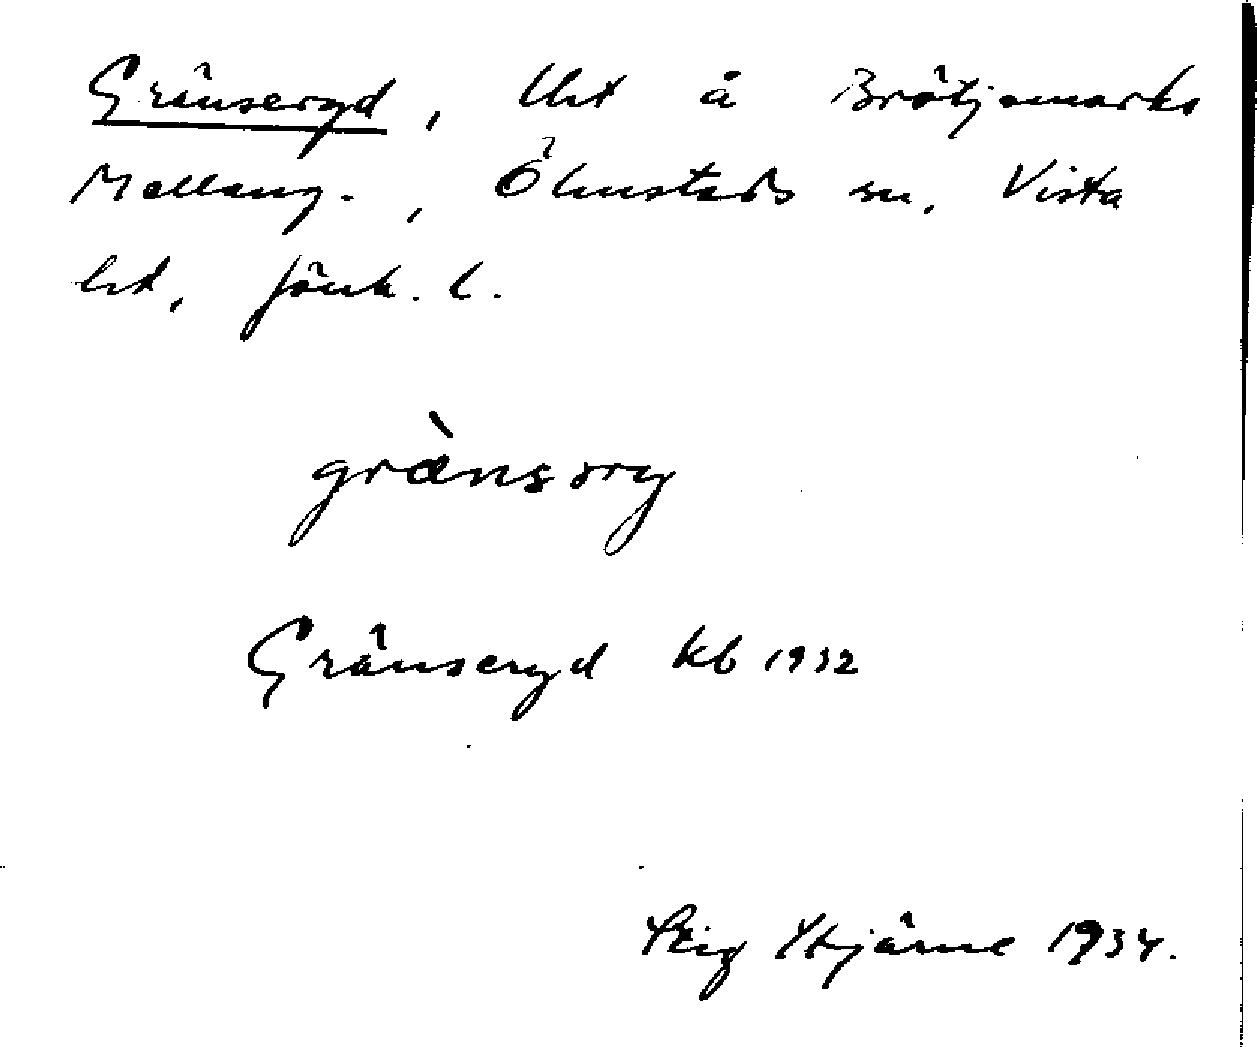 Gränseryd, lht å Brötjemarks
Mellang., Ölmstads sn, Vista
hd, Jönk. l.
grànsəry
Gränseryd kb 1932
Stig Stjärne 1934.